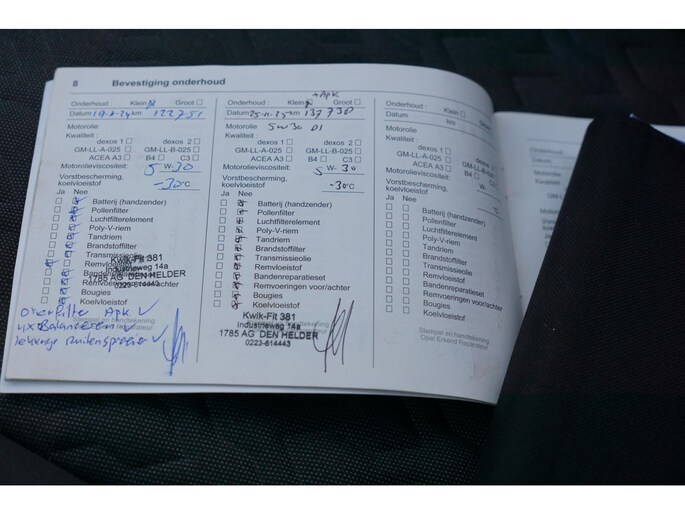 8 Bevestiging onderhoud
Onderhoud: Klein Groot
Datum 19-11-24 km: 122751
Motorolie
Kwaliteit:
dexos 1 dexos 2
GM-LL-A-025 GM-LL-B-025
ACEA A3 B4 C3
Motorolieviscositeit: 5 W-30
Vorstbescherming,
koelvloeistof -30°C
Ja Nee
Batterij (handzender)
Pollenfilter
Luchtfilterelement
Poly-V-riem
Tandriem
Brandstoffilter
Transmissieolie
Remvloeistof
Bandenreparatieset
Remvoeringen voor/achter
Bougies
Koelvloeistof
Kwik-Fit 381
Industrieweg 14a
1785 AG DEN HELDER
0223-614443
oliefilter Apk
4x Balanceren
lekkage ruitensproeier
+Apk
Onderhoud: Klein Groot
Datum 25-11-25 km: 137730
Motorolie 5W30 D1
Kwaliteit:
dexos 1 dexos 2
GM-LL-A-025 GM-LL-B-025
ACEA A3 B4 C3
Motorolieviscositeit: 5 W-30
Vorstbescherming,
koelvloeistof -30°C
Ja Nee
Batterij (handzender)
Pollenfilter
Luchtfilterelement
Poly-V-riem
Tandriem
Brandstoffilter
Transmissieolie
Remvloeistof
Bandenreparatieset
Remvoeringen voor/achter
Bougies
Koelvloeistof
Kwik-Fit 381
Industrieweg 14a
1785 AG DEN HELDER
0223-614443
Onderhoud: Klein Groot
Datum km:
Motorolie
Kwaliteit:
dexos 1 dexos 2
GM-LL-A-025 GM-LL-B-025
ACEA A3 B4 C3
Motorolieviscositeit: W-
Vorstbescherming,
koelvloeistof °C
Ja Nee
Batterij (handzender)
Pollenfilter
Luchtfilterelement
Poly-V-riem
Tandriem
Brandstoffilter
Transmissieolie
Remvloeistof
Bandenreparatieset
Remvoeringen voor/achter
Bougies
Koelvloeistof
Stempel en handtekening
Opel Erkend Reparateur
Onderhoud:
Datum
Motorolie
Kwaliteit